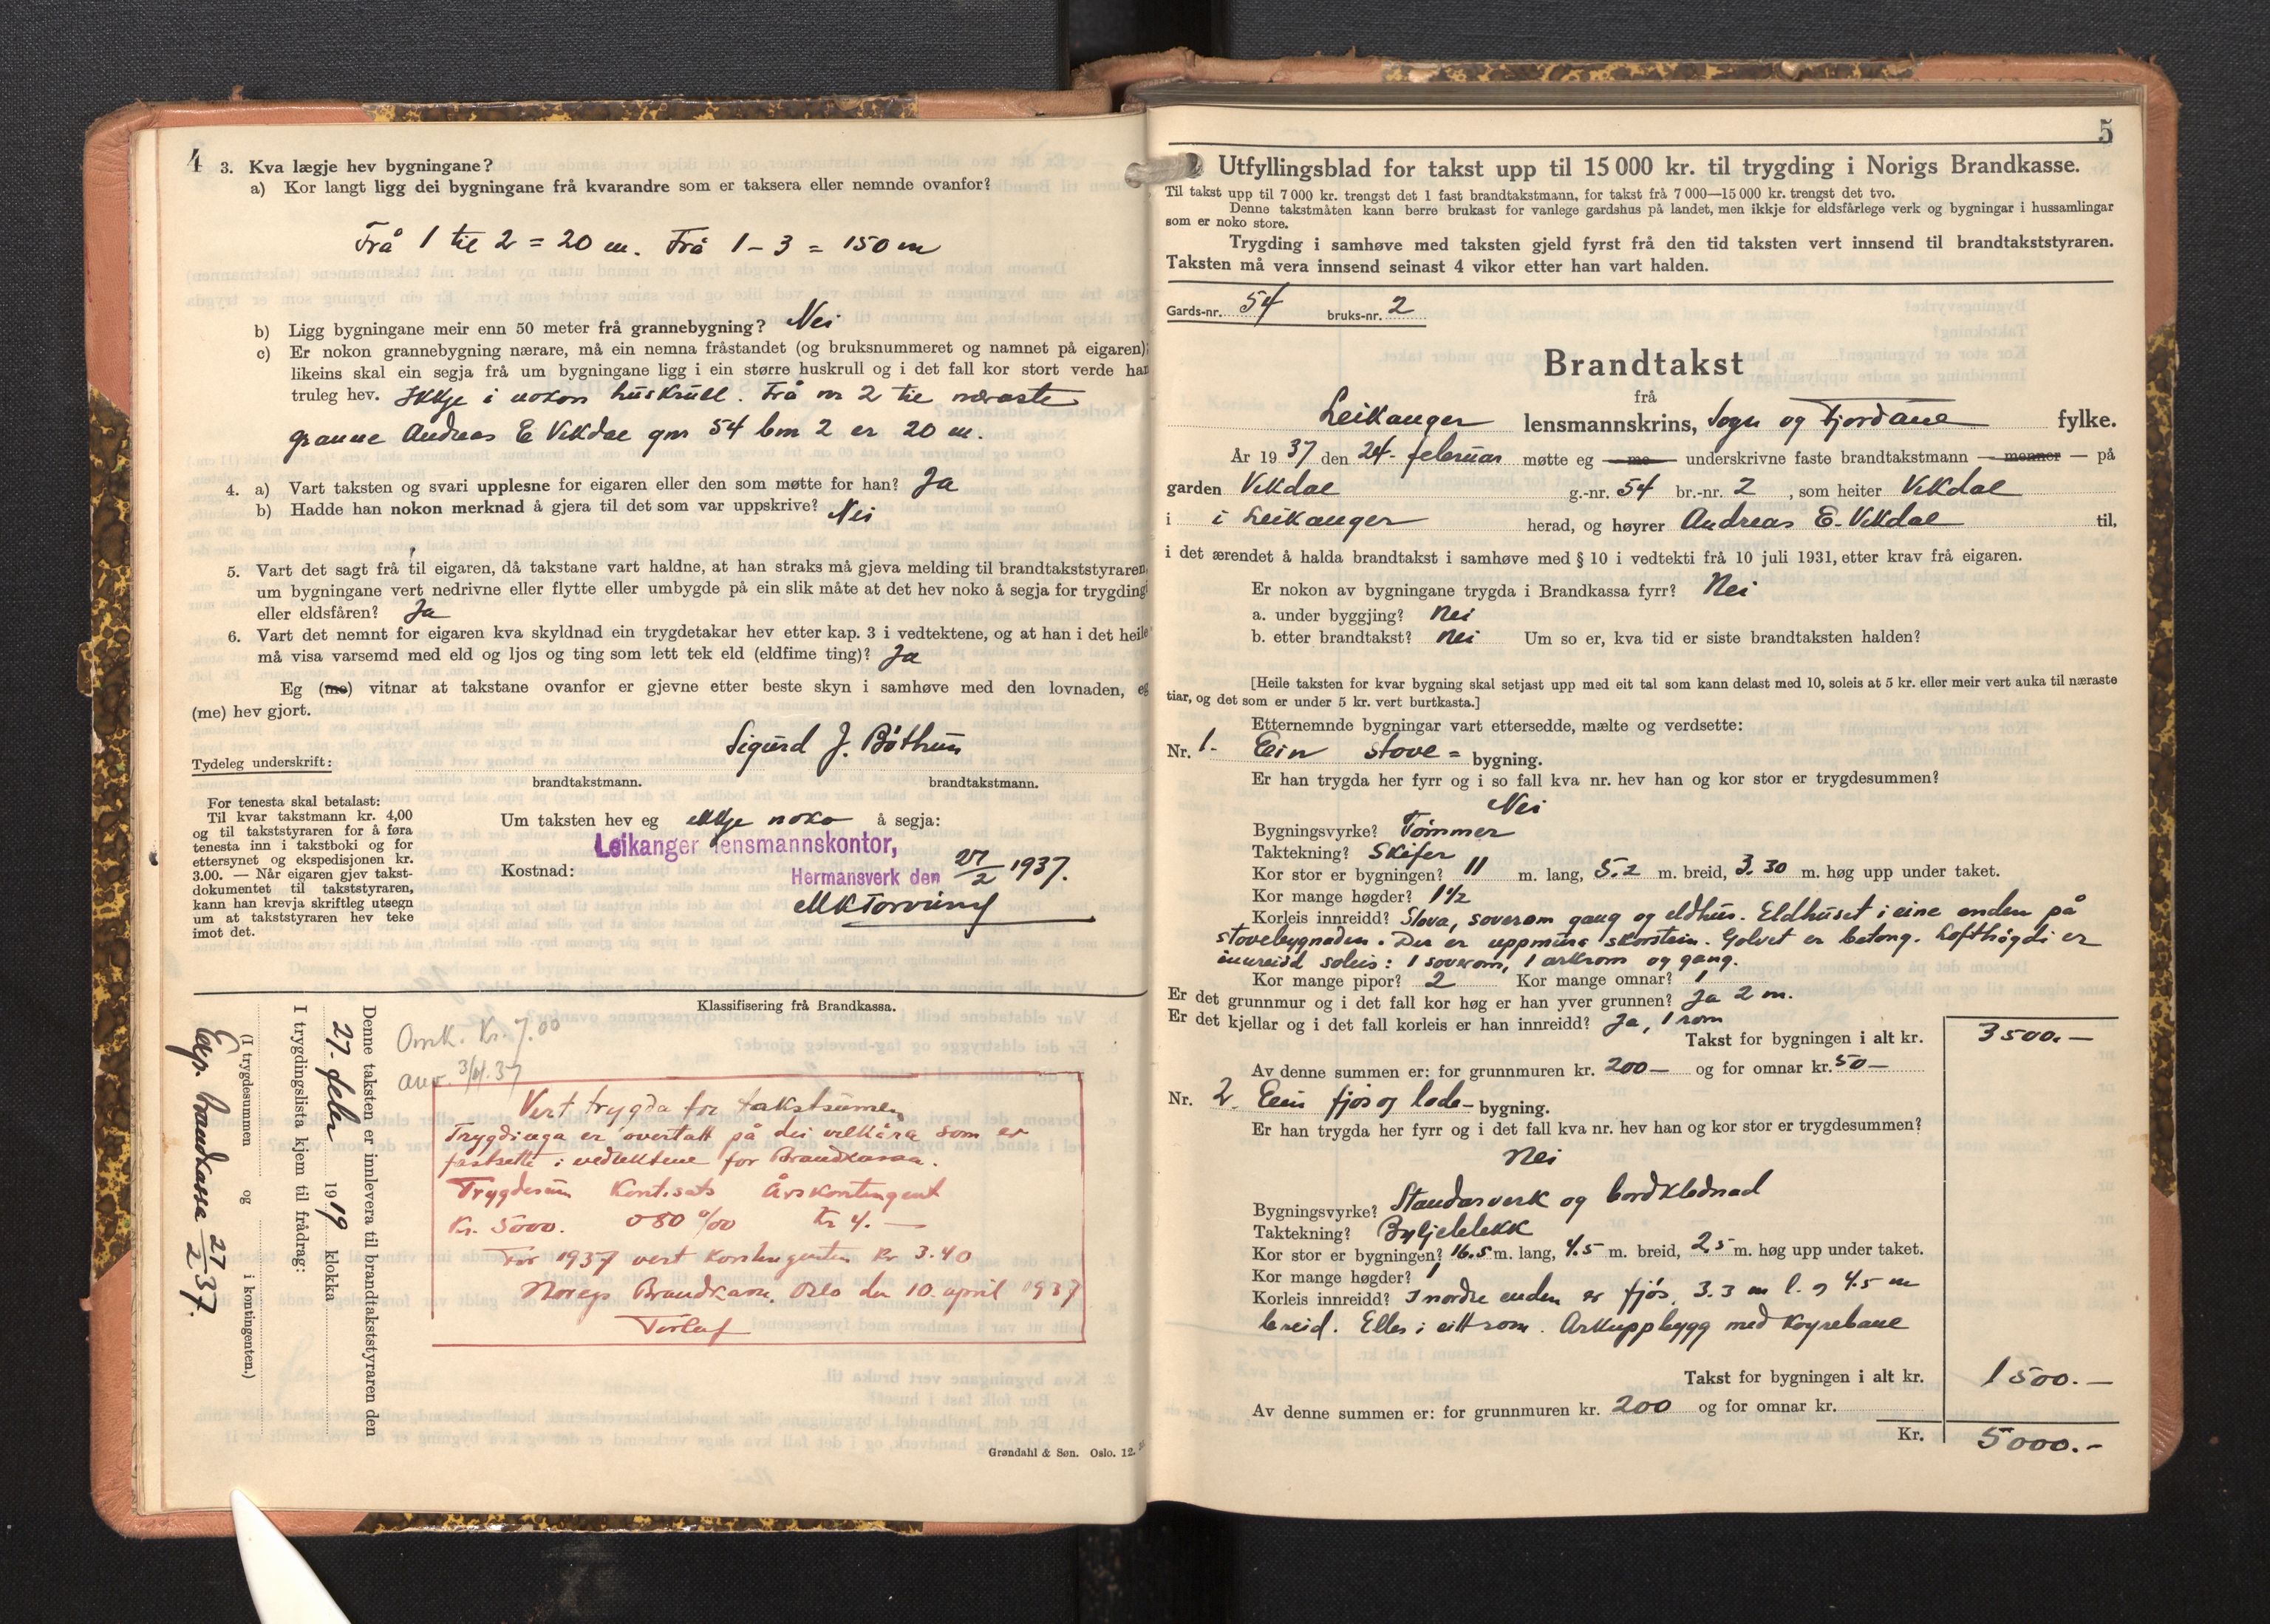 4
3. Kva lægje hev bygningane?
a) Kor langt ligg dei bygningane frå kvarandre som er taksera eller nemnde ovanfor?
Frå 1 til 2 = 20 m. Frå 1 - 3 = 150 m
b) Ligg bygningane meir enn 50 meter frå grannebygning? Nei
c) Er nokon grannebygning nærare, må ein nemna fråstandet (og bruksnummeret og namnet på eigaren);
likeins skal ein segja frå um bygningane ligg i ein større huskrull og i det fall kor stort verde han
truleg hev. Ikkje i nokon huskrull. Frå nr 2 til næraste
granne Andreas E Vikdal gnr 54 bnr 2 er 20 m.
4. a) Vart taksten og svari upplesne for eigaren eller den som møtte for han? Ja
b) Hadde han nokon merknad å gjera til det som var uppskrive? Nei
5. Vart det sagt frå til eigaren, då takstane vart haldne, at han straks må gjeva melding til brandtakststyraren,
um bygningane vert nedrivne eller flytte eller umbygde på ein slik måte at det hev noko å segja for trygding
eller eldsfåren? Ja
6. Vart det nemnt for eigaren kva skyldnad ein trygdetakar hev etter kap. 3 i vedtektene, og at han i det heile
må visa varsemd med eld og ljos og ting som lett tek eld (eldfime ting)? Ja
Eg (me) vitnar at takstane ovanfor er gjevne etter beste skyn i samhøve med den lovnaden, eg
(me) hev gjort.
Sigurd J. Bøthun
Tydeleg underskrift:
brandtakstmann. brandtakstmann.
For tenesta skal betalast:
Til kvar takstmann kr. 4,00
og til takststyraren for å føra
tenesta inn i takstboki og for
ettersynet og ekspedisjonen kr.
3.00. — Når eigaren gjev takst-
dokumentet til takststyraren,
kann han krevja skriftleg utsegn
um at takststyraren hev teke
imot det.
Um taksten hev eg ikkje noko å segja:
Leikanger lensmannskontor,
Kostnad:
Hermansverk den 27/2 1937.
Klassifisering frå Brandkassa.
Omk. Kr. 7.00
anv. 3/4.37
Vert trygda for takstsumen
Trygdinga er overtatt på dei vilkåra som er
fastsette i vedtektene for Brandkassa.
Trygdesum Kont.sats Årskontingent
Kr. 5000. 080 o/oo Kr 4. —
For 1937 vert kontingenten kr 3.40
Noregs Brandkasse. Oslo den 10. april 1937
Denne taksten er innlevera til brandtakststyraren den
27. febr 1919 klokka
I trygdingslista kjem til frådrag:
(I trygdesummen og i kontingenten.)
Exp. brandkassa 27/2 37.
Grøndahl & Søn. Oslo. 12.
5
Utfyllingsblad for takst upp til 15 000 kr. til trygding i Norigs Brandkasse.
Til takst upp til 7 000 kr. trengst det 1 fast brandtakstmann, for takst frå 7 000—15 000 kr. trengst det tvo.
Denne takstmåten kann berre brukast for vanlege gardshus på landet, men ikkje for eldsfårlege verk og bygningar i hussamlingar
som er noko store.
Trygding i samhøve med taksten gjeld fyrst frå den tid taksten vert innsend til brandtakststyraren.
Taksten må vera innsend seinast 4 vikor etter han vart halden.
Gards-nr. 54 bruks-nr. 2
Brandtakst
frå
Leikanger lensmannskrins, Sogn og Fjordane fylke.
År 1937 den 24. februar møtte eg — me — underskrivne faste brandtakstmann — menner — på
garden Vikdal g.-nr. 54 br.-nr. 2, som heiter Vikdal
i i Leikanger herad, og høyrer Andreas E. Vikdal til,
i det ærendet å halda brandtakst i samhøve med § 10 i vedtekti frå 10 juli 1931, etter krav frå eigaren.
Er nokon av bygningane trygda i Brandkassa fyrr? Nei
a. under byggjing? Nei
b. etter brandtakst? Nei Um so er, kva tid er siste brandtaksten halden?
[Heile taksten for kvar bygning skal setjast upp med eit tal som kann delast med 10, soleis at 5 kr. eller meir vert auka til næraste
tiar, og det som er under 5 kr. vert burtkasta.]
Etternemnde bygningar vart ettersedde, mælte og verdsette:
Nr. 1. Ein stove = bygning.
Er han trygda her fyrr og i so fall kva nr. hev han og kor stor er trygdesummen?
Nei
Bygningsvyrke? Tømmer
Taktekning? Skifer
Kor stor er bygningen? 11 m. lang, 5.2 m. breid, 3.30 m. høg upp under taket.
Kor mange høgder? 1½
Korleis innreidd? Stova, soverom gang og eldhus. Eldhuset i eine enden på
stovebygnaden. Der er uppmura skorstein. Golvet er betong. Lofthøgdi er
innreidd soleis: 1 soverom, 1 arkrom og gang.
Kor mange pipor? 2 Kor mange omnar? 1
Er det grunnmur og i det fall kor høg er han yver grunnen? Ja 2 m.
Er det kjellar og i det fall korleis er han innreidd? Ja, 1 rom
Takst for bygningen i alt kr. 3500.—
Av denne summen er: for grunnmuren kr. 200— og for omnar kr. 50—
Nr. 2. Ein fjos og lode- bygning.
Er han trygda her fyrr og i det fall kva nr. hev han og kor stor er trygdesummen?
Nei
Bygningsvyrke? Standarverk og bordklednad
Taktekning? Bylgjeblekk
Kor stor er bygningen? 16.5 m. lang, 4.5 m. breid, 2,5 m. høg upp under taket.
Kor mange høgder? 1
Korleis innreidd? I nordre enden er fjós, 3.3 m l. og 4.5 m
breid. Elles i eitt rom. Arkuppbygg med køyrebane
Takst for bygningen i alt kr. 1500.—
Av denne summen er: for grunnmuren kr. 200 og for omnar kr.
Kr. 5000.-